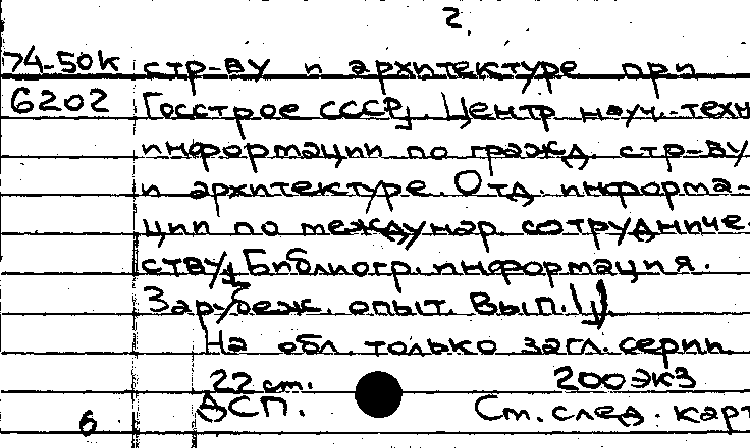 2.
74-50к стр-ву и архитектуре при
6202 Госстрое СССР], Центр науч.-техн
информации по гражд. стр-ву
и архитектуре. Отд. информа-
ции по междунар. сотрудниче-
ству] Библиогр. информация.
Зарубеж. опыт. Вып.
На обл. только загл. серии
22 см. 200 экз
6 ДСП. См. след. карт